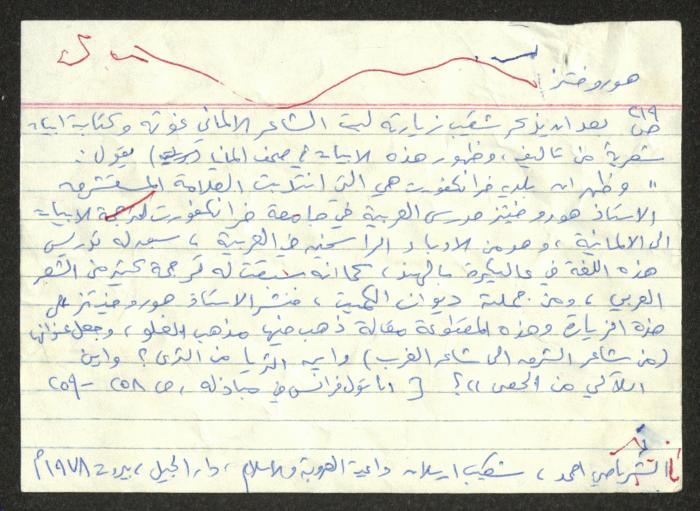 هوروفتز
ص ٢١٩ بعد ان يذكر شكيب زيارته لبيت الشاعر الالماني غوته وكتابة ابيات
شعرية من تاليفه، وظهور هذه الابيات في صحف المانيا يقول:
" وظهر ان بلدية فرانكفورت هي التي انتدبت العلامة المستشرق
الاستاذ هوروفيتز مدرس العربية في جامعة فرانكفورت لترجمة الابيات
الى الالمانية، وهو من الادباء الراسخين في العربية، سبق له تدريس
هذه اللغة في عاليكرة بالهند، كما انه سبقت له ترجمة كثير من الشعر
العربي، ومن جملته ديوان الكميت، فنشر الاستاذ هوروفيتز على
هذه الزيارة وهذه المقطوعة مقالة ذهب فيها مذهب الغلو، وجعل عنوانها
(من شاعر الشرق الى شاعر الغرب) واين الثريا من الثرى؟ واين
اللآلي من الحصى"؟ [ اناتول فرانس في مباذله، ص ٢٥٨ - ٢٥٩
الشرباصي احمد، شكيب ارسلان داعية العروبة والاسلام، دار الجيل، بيروت ١٩٧٨م